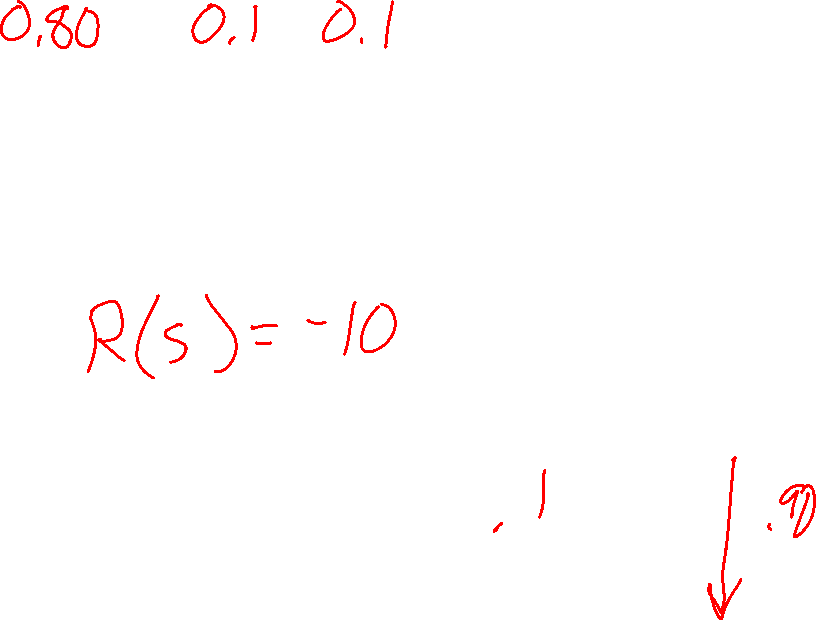 0.80 0.1 0.1
R(s) = -10
.1 .90